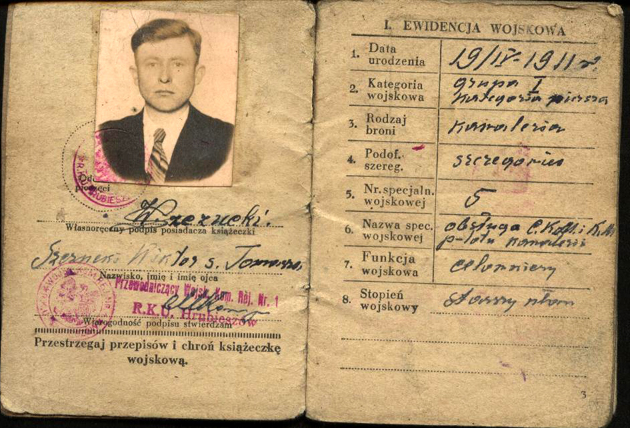 Własnoręczny podpis posiadacza książeczki
Wiktor s.
Nazwisko, imię i imię ojca
Przewodniczący Wojsk. Kom. Rej. Nr. 1
R.K.U. Hrubieszów
Wiarogodność podpisu stwierdzam
Przestrzegaj przepisów i chroń książeczkę
wojskową.
I. EWIDENCJA WOJSKOWA
1. Data urodzenia 19/IV-1911 r.
2. Kategoria wojskowa grupa I
kategoria pierwsza
3. Rodzaj broni kawaleria
4. Podof. szereg. szeregowiec
5. Nr. specjaln. wojskowej 5
6. Nazwa spec. wojskowej obsługa
kawalerii
7. Funkcja wojskowa celowniczy
8. Stopień wojskowy
3